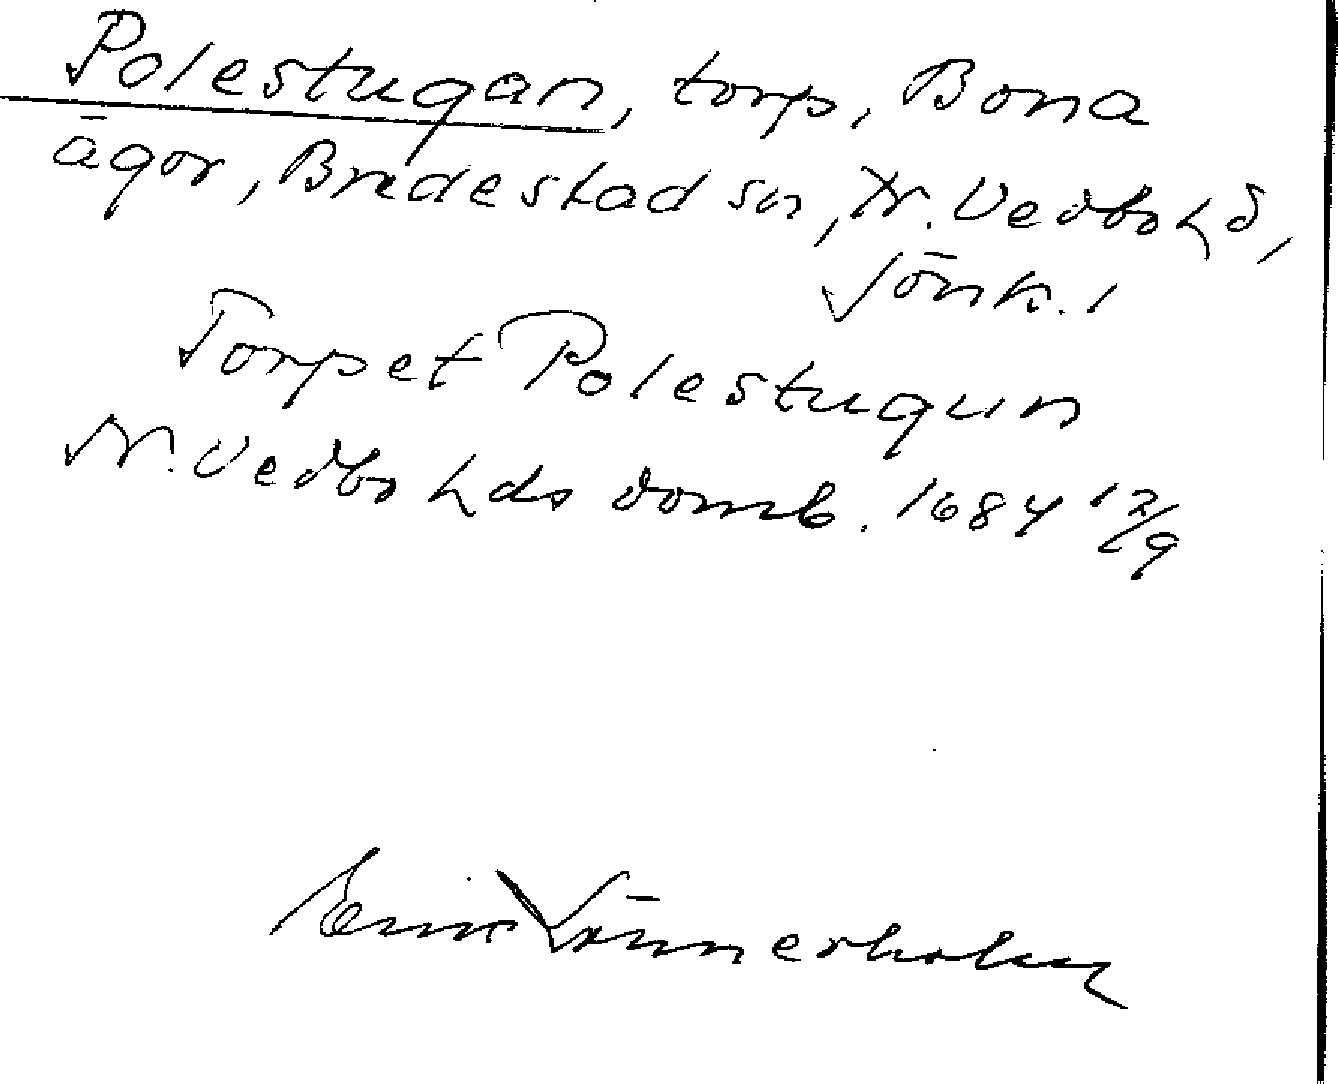 Polestugan, torp, Bona
ägor, Bredestad sn, N. Vedbo hd,
Jönk. l
Torpet Polestugun
N. Vedbo hds domb. 1684 12/9
Erik Lönnerholm